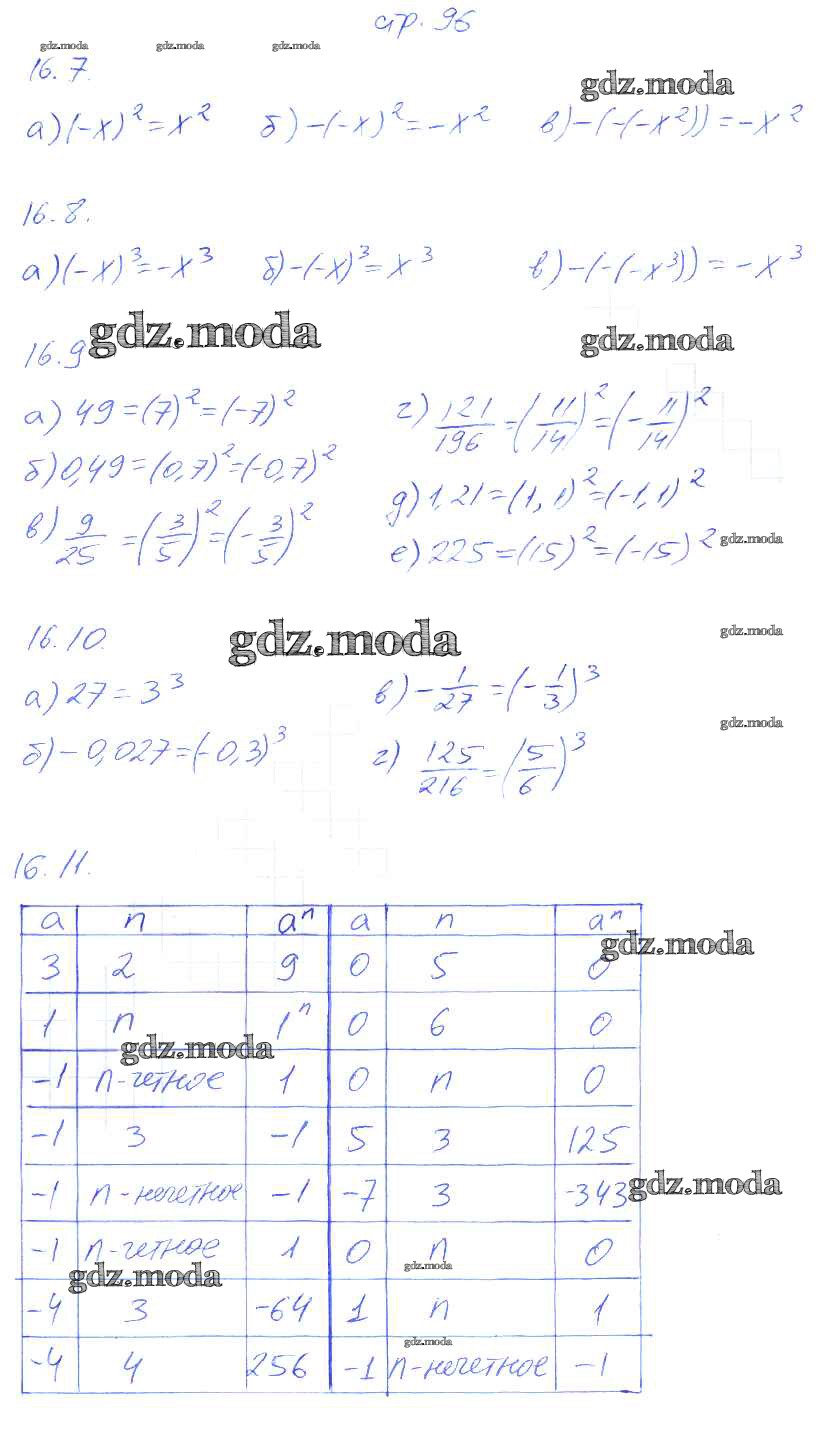 стр. 96
gdz.moda gdz.moda gdz.moda
16.7.
gdz.moda
а) (-x)² = x² б) -(-x)² = -x² в) -(-(-x²)) = -x²
16.8.
а) (-x)³ = -x³ б) -(-x)³ = x³ в) -(-(-x³)) = -x³
gdz.moda gdz.moda
16.9
а) 49 = (7)² = (-7)² г) 121/196 = (11/14)² = (-11/14)²
б) 0,49 = (0,7)² = (-0,7)² д) 1,21 = (1,1)² = (-1,1)²
в) 9/25 = (3/5)² = (-3/5)² е) 225 = (15)² = (-15)²
gdz.moda
16.10.
gdz.moda gdz.moda
а) 27 = 3³ в) -1/27 = (-1/3)³
gdz.moda
б) -0,027 = (-0,3)³ г) 125/216 = (5/6)³
16.11.
a n aⁿ a n aⁿ
gdz.moda
3 2 9 0 5 0
1 n 1ⁿ 0 6 0
gdz.moda
-1 n-четное 1 0 n 0
-1 3 -1 5 3 125
-1 n-нечетное -1 -7 3 -343
gdz.moda
-1 n-четное 1 0 n 0
gdz.moda gdz.moda
-4 3 -64 1 n 1
gdz.moda
-4 4 256 -1 n-нечетное -1